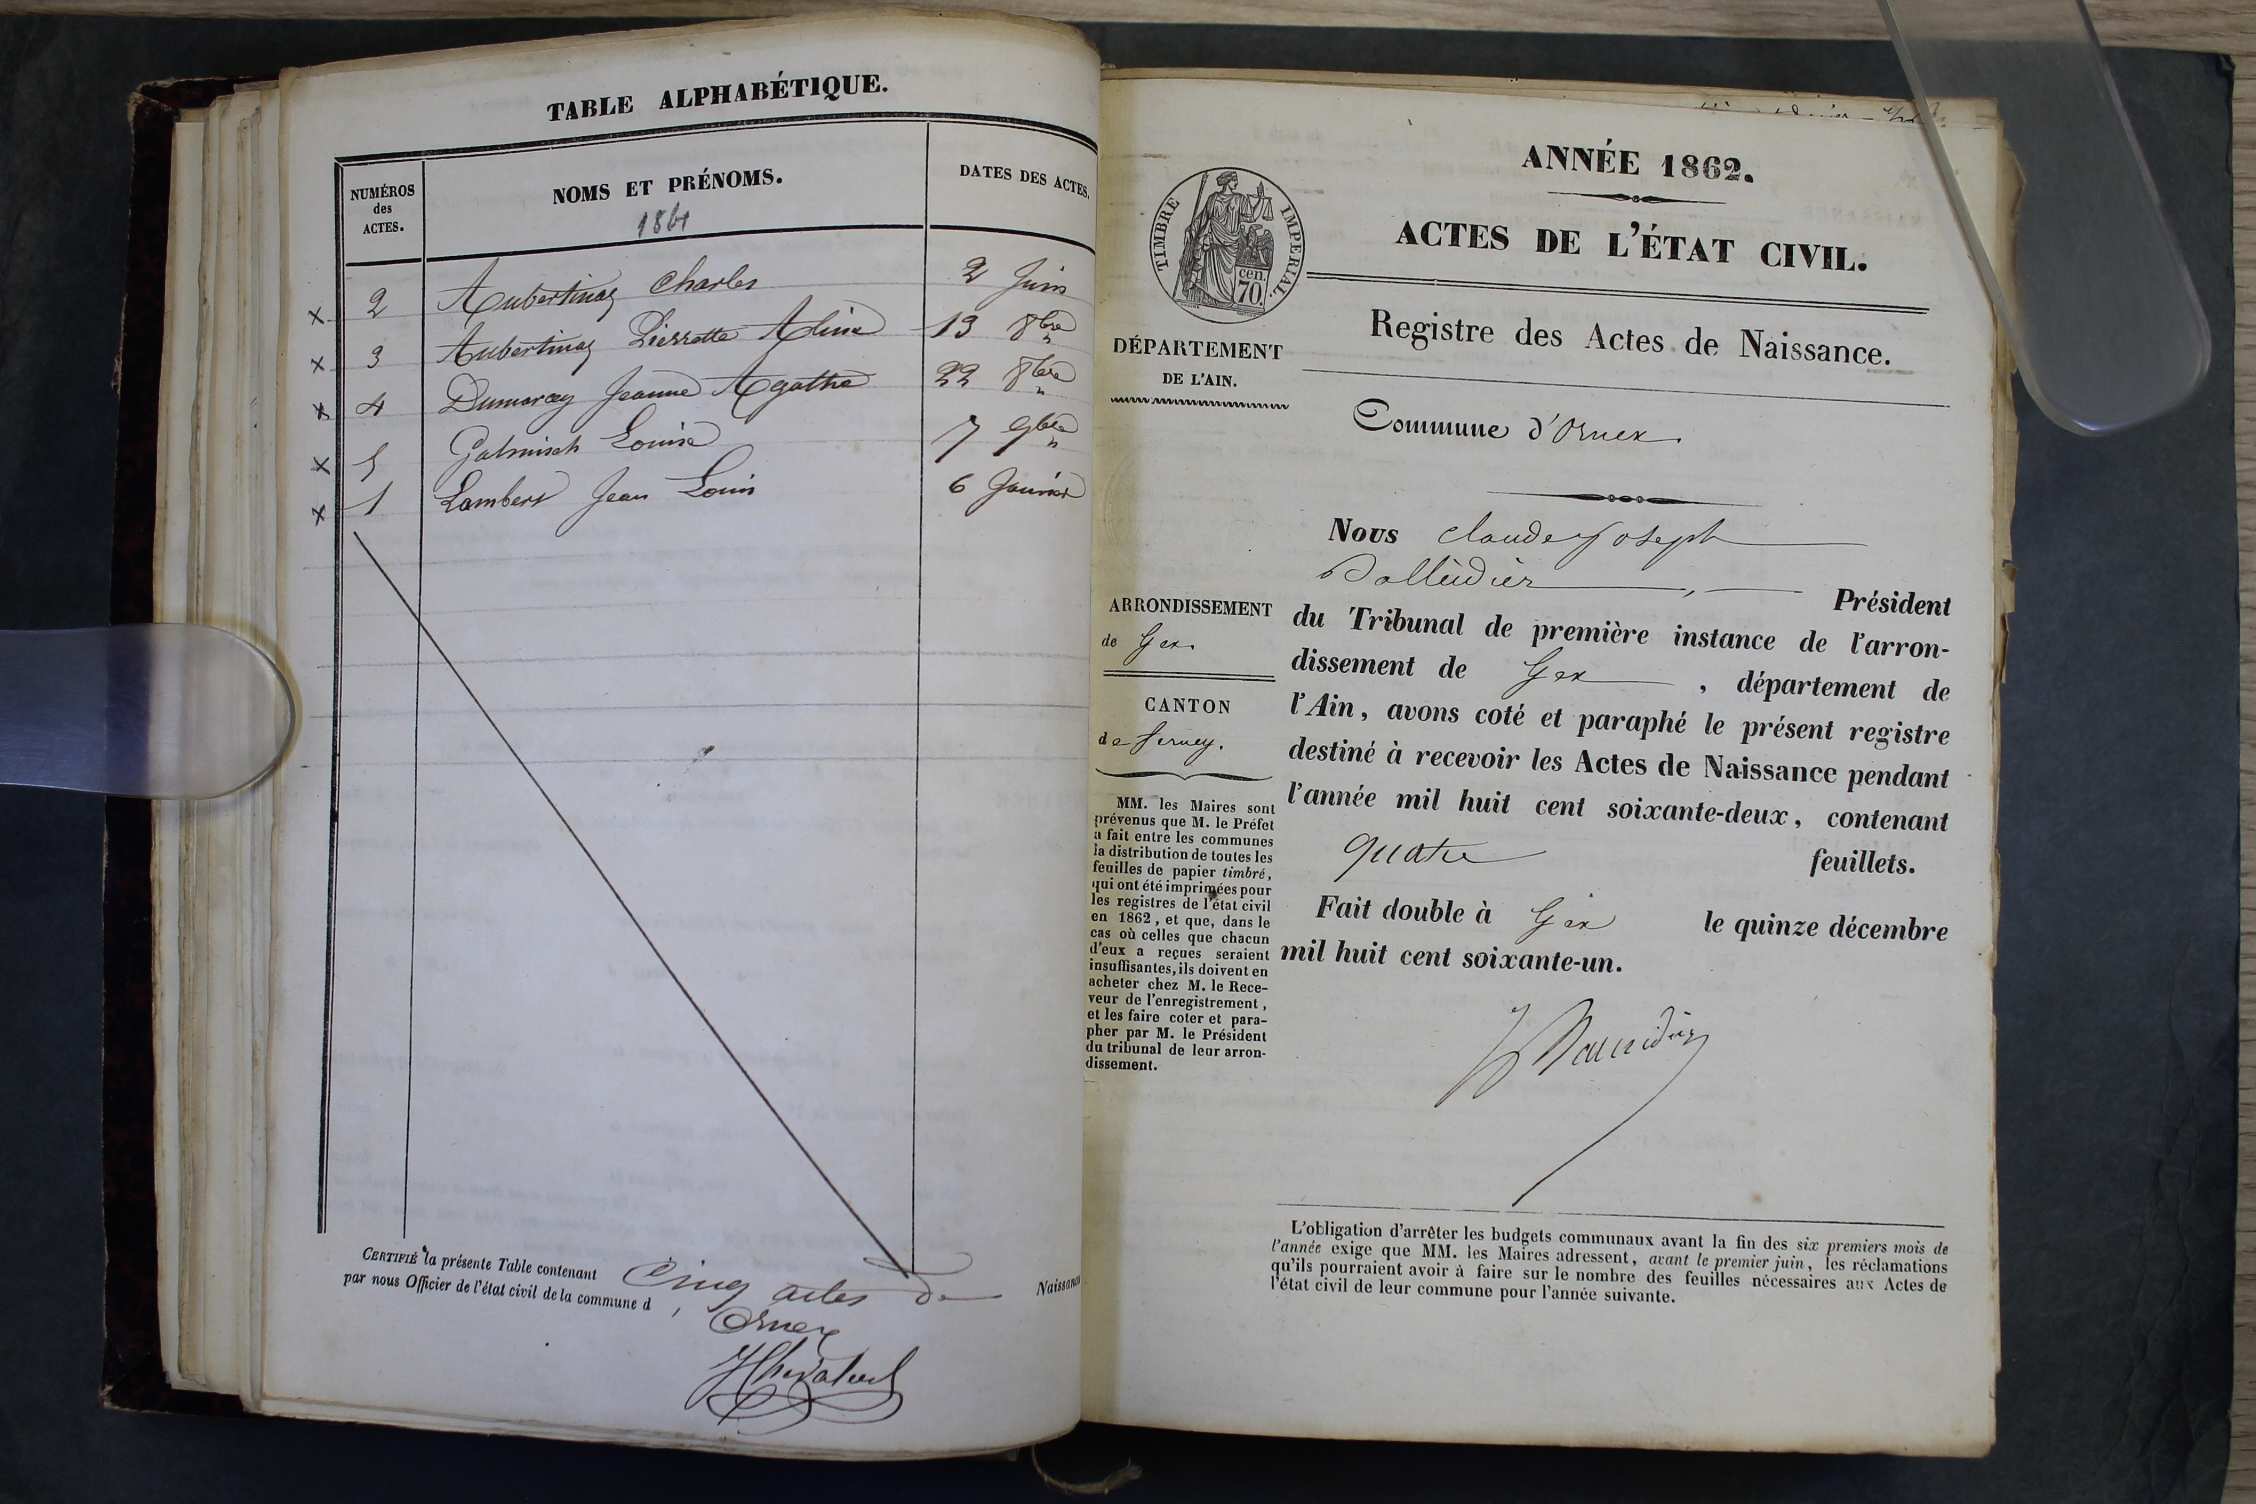 TABLE ALPHABÉTIQUE.
NUMÉROS
des
ACTES.
NOMS ET PRÉNOMS.
1861
DATES DES ACTES.
x 2 Aubertinaz Charles 2 Juin
x 3 Aubertinaz Pierrette Aline 13 8bre
x 4 Dumarey Jeanne Agathe 22 8bre
x 5 Louise 7 9bre
x 1 Lambert Jean Louis 6 Janvier
CERTIFIÉ la présente Table contenant Cinq actes de Naissance
par nous Officier de l'état civil de la commune d'Ornex
ANNÉE 1862.
ACTES DE L'ÉTAT CIVIL.
TIMBRE IMPERIAL.
cen.
70.
DÉPARTEMENT
DE L'AIN.
Registre des Actes de Naissance.
Commune d'Ornex.
ARRONDISSEMENT
de Gex.
CANTON
de Ferney.
MM. les Maires sont
prévenus que M. le Préfet
a fait entre les communes
la distribution de toutes les
feuilles de papier timbré,
qui ont été imprimées pour
les registres de l'état civil
en 1862, et que, dans le
cas où celles que chacun
d'eux a reçues seraient
insuffisantes, ils doivent en
acheter chez M. le Rece-
veur de l'enregistrement,
et les faire coter et para-
pher par M. le Président
du tribunal de leur arron-
dissement.
Nous Claude Joseph
Président
du Tribunal de première instance de l'arron-
dissement de Gex, département de
l'Ain, avons coté et paraphé le présent registre
destiné à recevoir les Actes de Naissance pendant
l'année mil huit cent soixante-deux, contenant
quatre feuillets.
Fait double à Gex le quinze décembre
mil huit cent soixante-un.
L'obligation d'arrêter les budgets communaux avant la fin des six premiers mois de
l'année exige que MM. les Maires adressent, avant le premier juin, les réclamations
qu'ils pourraient avoir à faire sur le nombre des feuilles nécessaires aux Actes de
l'état civil de leur commune pour l'année suivante.